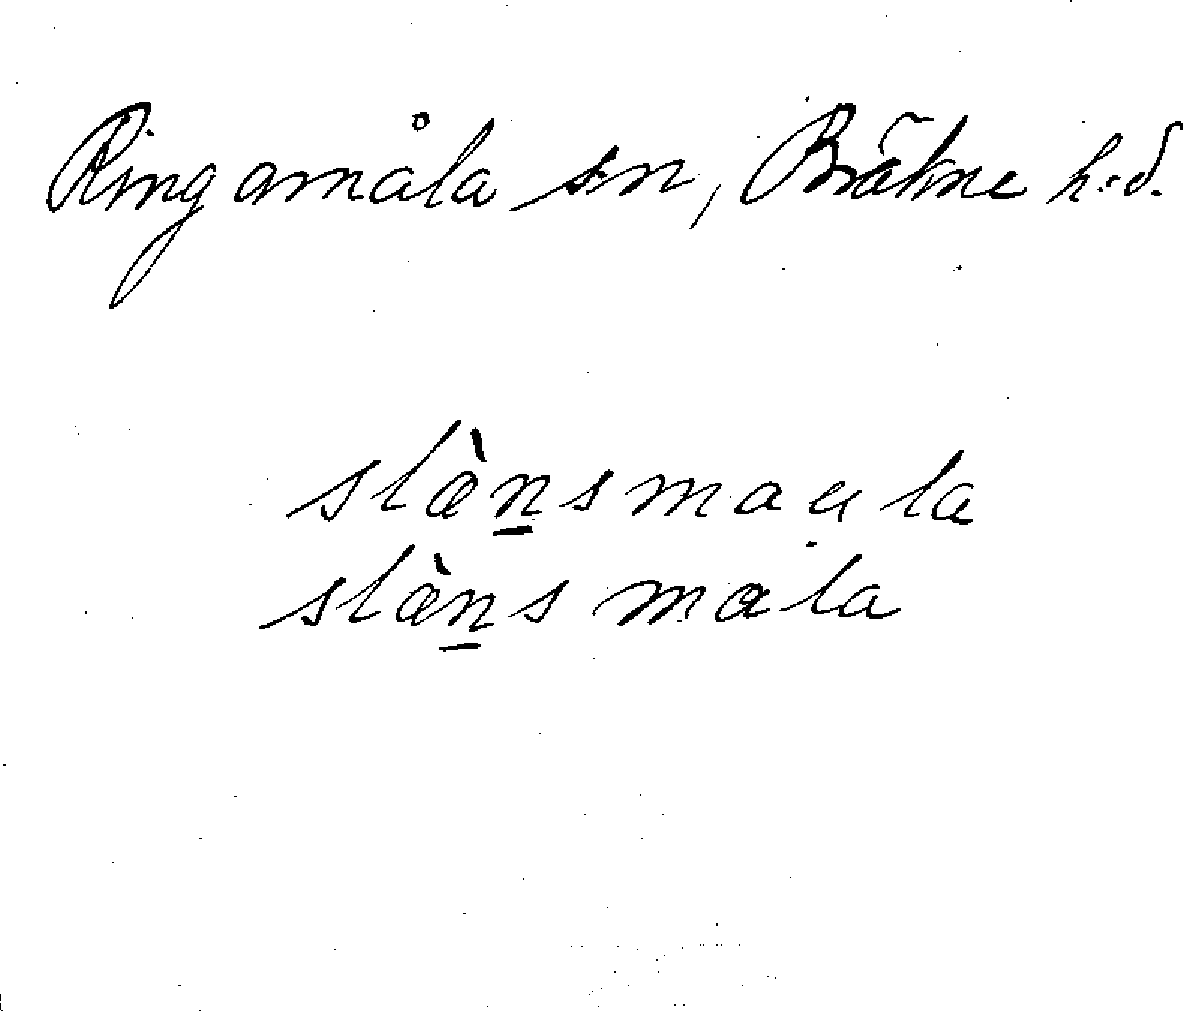 Ringamåla sn, Bräkne hd.
slæ̀n̲smaula
slæ̀n̲småla